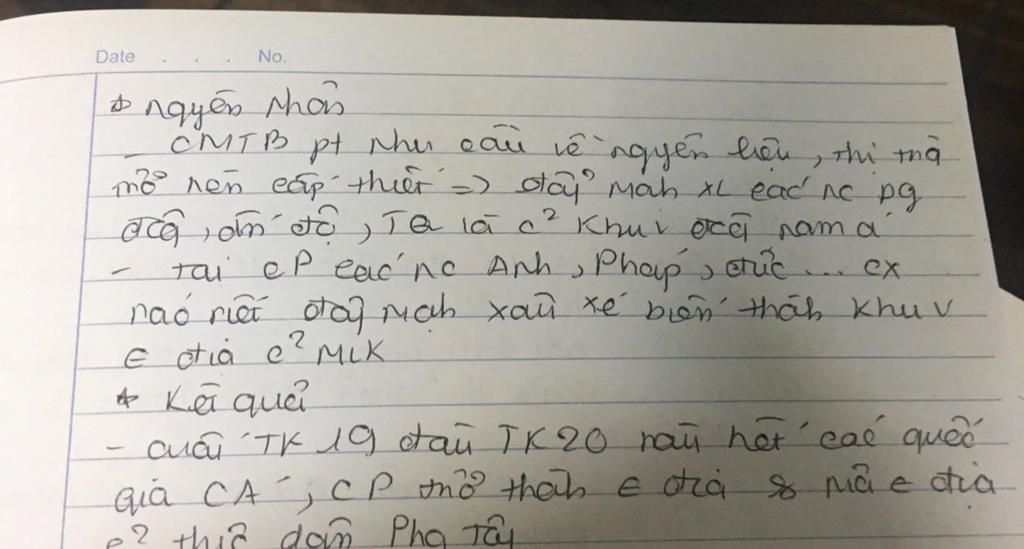 Date . . . No.
* nguyên nhân
- CMTB pt nhu cầu về nguyên liệu, thị trg
trở nên cấp thiết => đẩy mạh XL các nc pg
đôg, ấn độ, TQ là c² khu v đôg nam á
- tại CP các nc Anh, Pháp, đức ... cx
ráo riết đẩy mạh xâu xé biến thàh khu v
∈ địa c² MLK
* Kết quả
- cuối TK 19 đầu TK 20 hầu hết các quốc
gia CÁ, CP trở thàh ∈ địa & nửa ∈ địa
c² thực dân Phg Tây